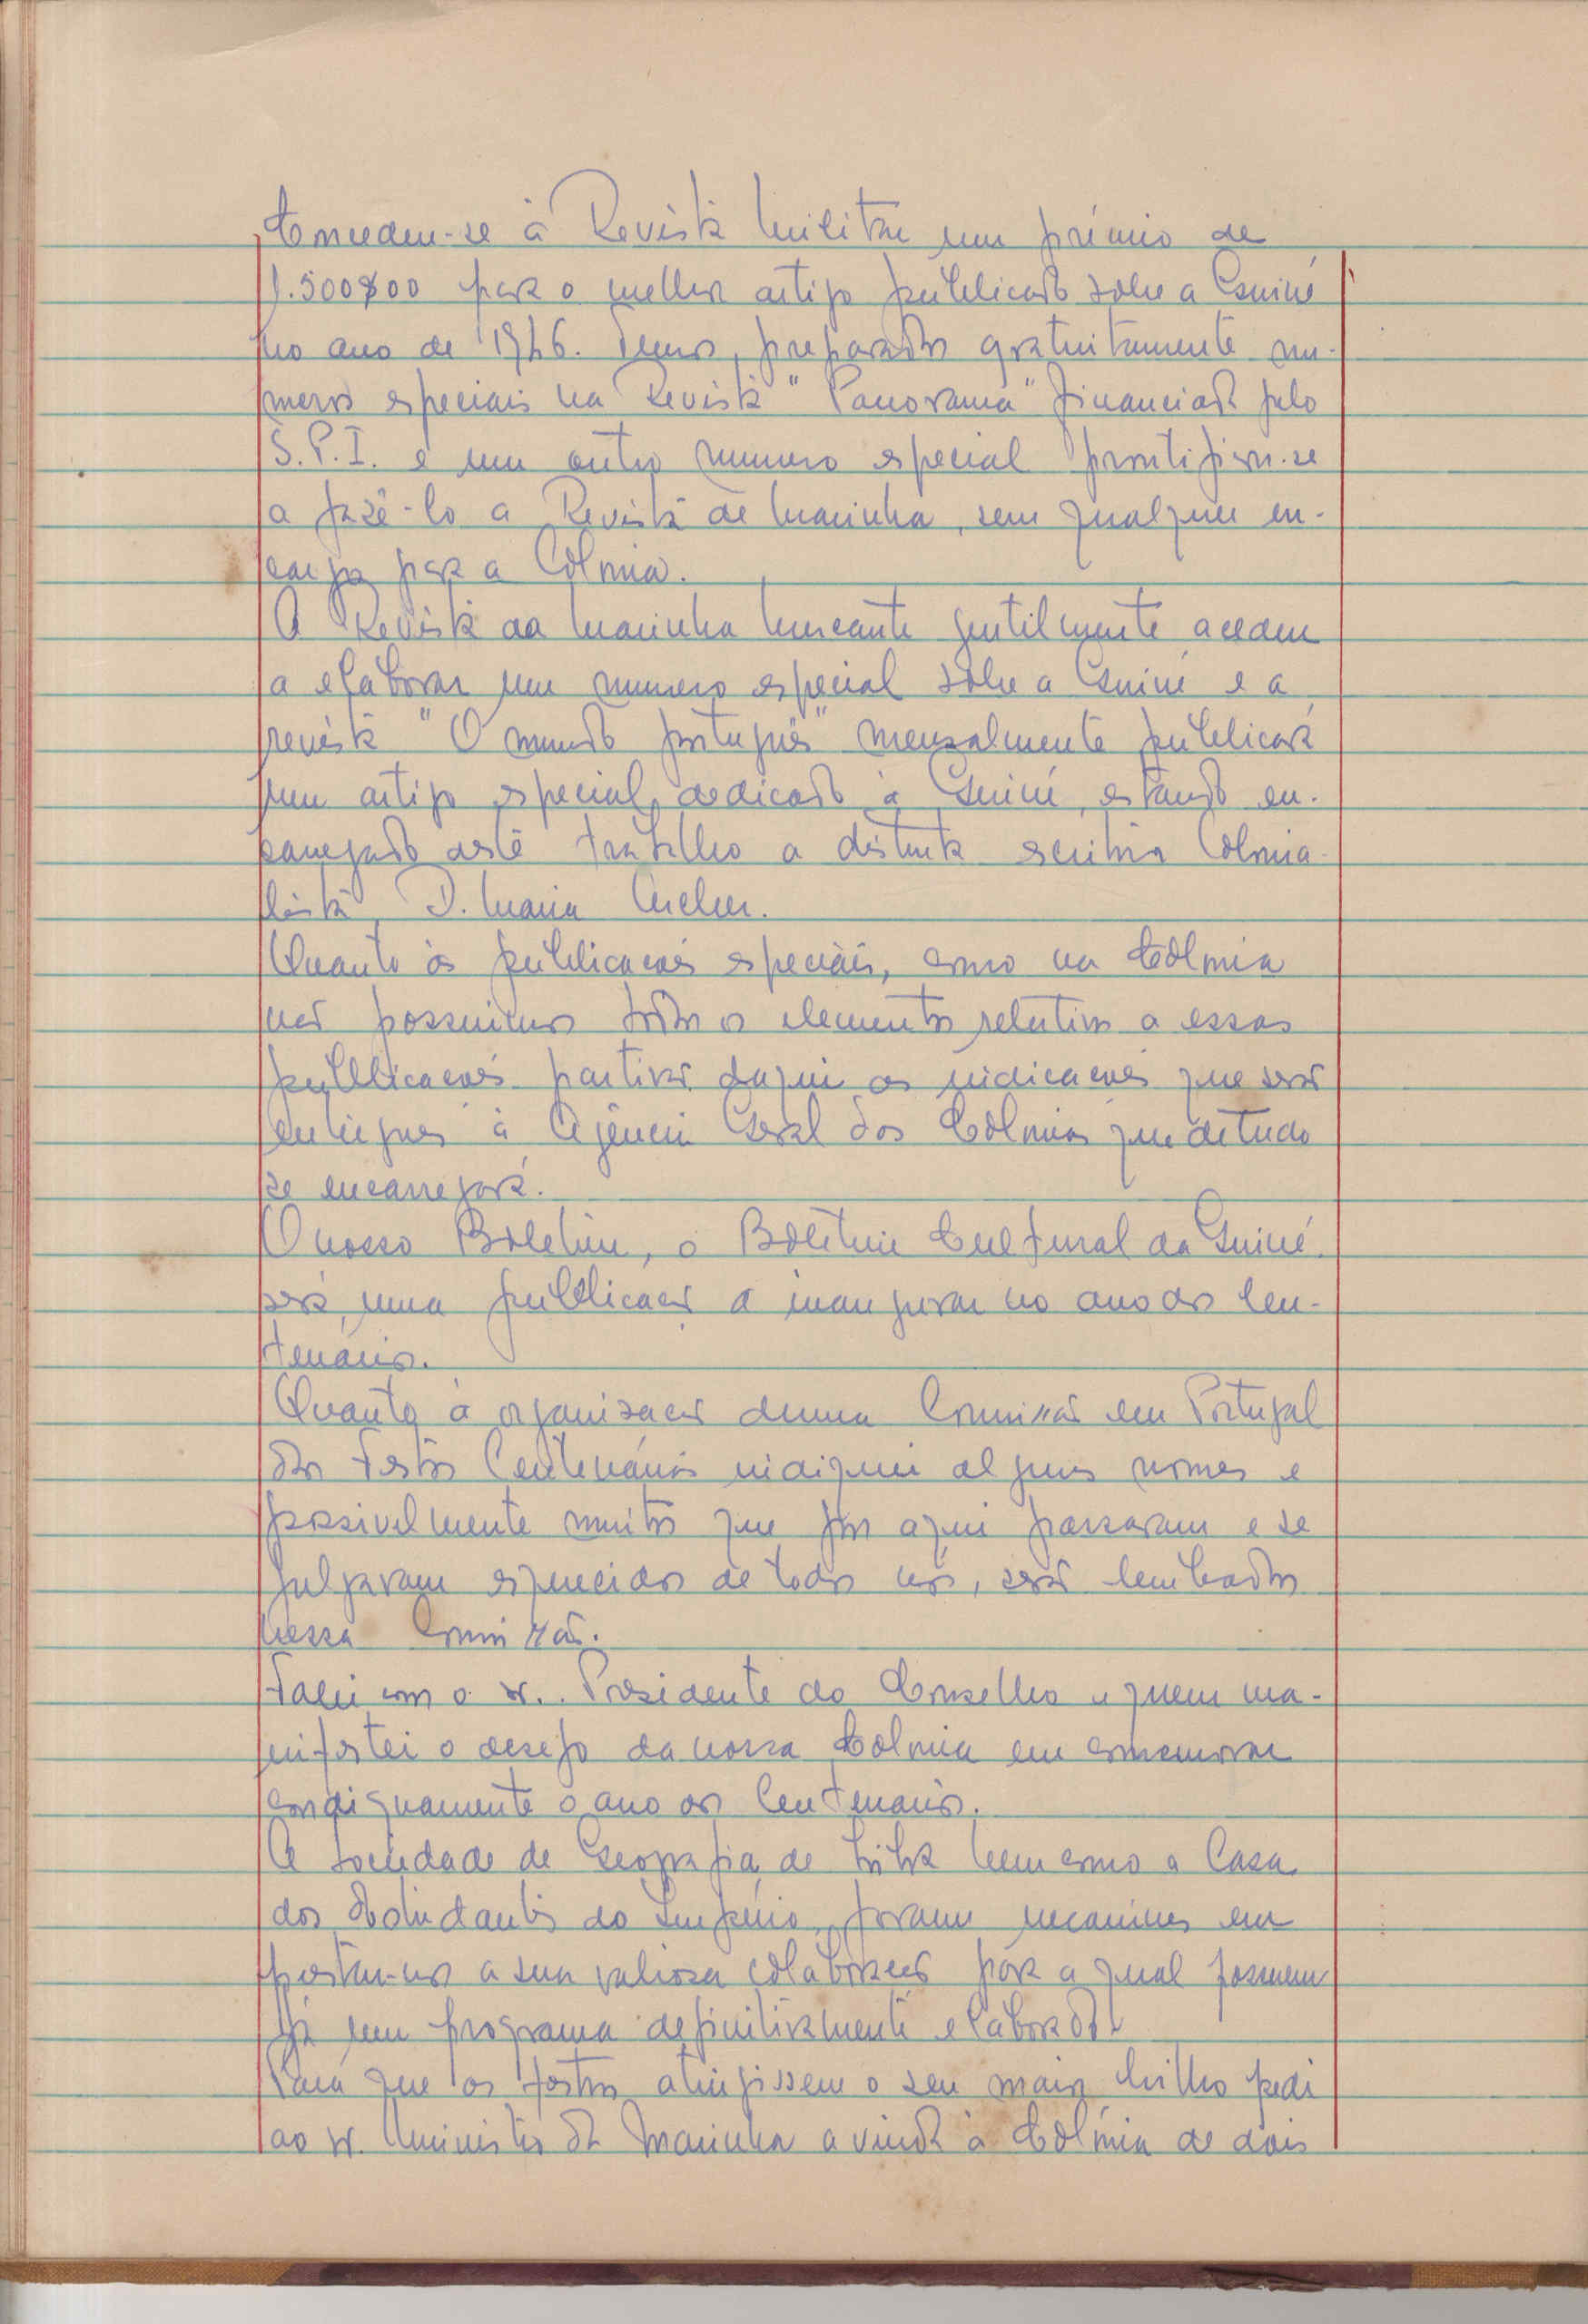 Concedeu-se à Revista Militar um prémio de
1.500$00 para o melhor artigo publicado sobre a Guiné
no ano de 1946. Temos, preparados gratuitamente nu-
meros especiais na Revista "Panorama" financiada pelo
S.P.I. e um outro numero especial prontificou-se
a fazê-lo a Revista de Marinha, sem qualquer en-
cargo para a Colonia.
A Revista da Marinha Mercante gentilmente acedeu
a elaborar um numero especial sobre a Guiné e a
revista "O mundo português" mensalmente publicará
um artigo especial, dedicado à Guiné, estando en-
carregado deste trabalho a distinta escritora Colonia-
lista, D. Maria Archer.
Quanto às publicações especiais, como na Colonia
não possuimos todos os elementos relativos a essas
publicações partirão daqui as indicações que serão
entregues à Agência Geral das Colonias que de tudo
se encarregará.
O nosso Boletim, o Boletim Cultural da Guiné
será, uma publicação a inaugurar no ano do Cen-
tenário.
Quanto à organização duma Comissão em Portugal
das Festas Centenárias indiquei alguns nomes e
possivelmente muitos que por aqui passaram e se
julgavam esquecidos de todos nós, serão lembrados
nessa Comissão.
Falei com o sr. Presidente do Conselho a quem ma-
nifestei o desejo da nossa Colonia em comemorar
condignamente o ano do Centenário.
A Sociedade de Geografia de Lisboa bem como a Casa
dos Estudantes do Império, foram unanimes em
prestar-nos a sua valiosa colaboração para a qual possuem
já um programa definitivamente elaborado.
Para que as festas atingissem o seu maior brilho pedi
ao sr. Ministro da Marinha a vinda à Colónia de dois